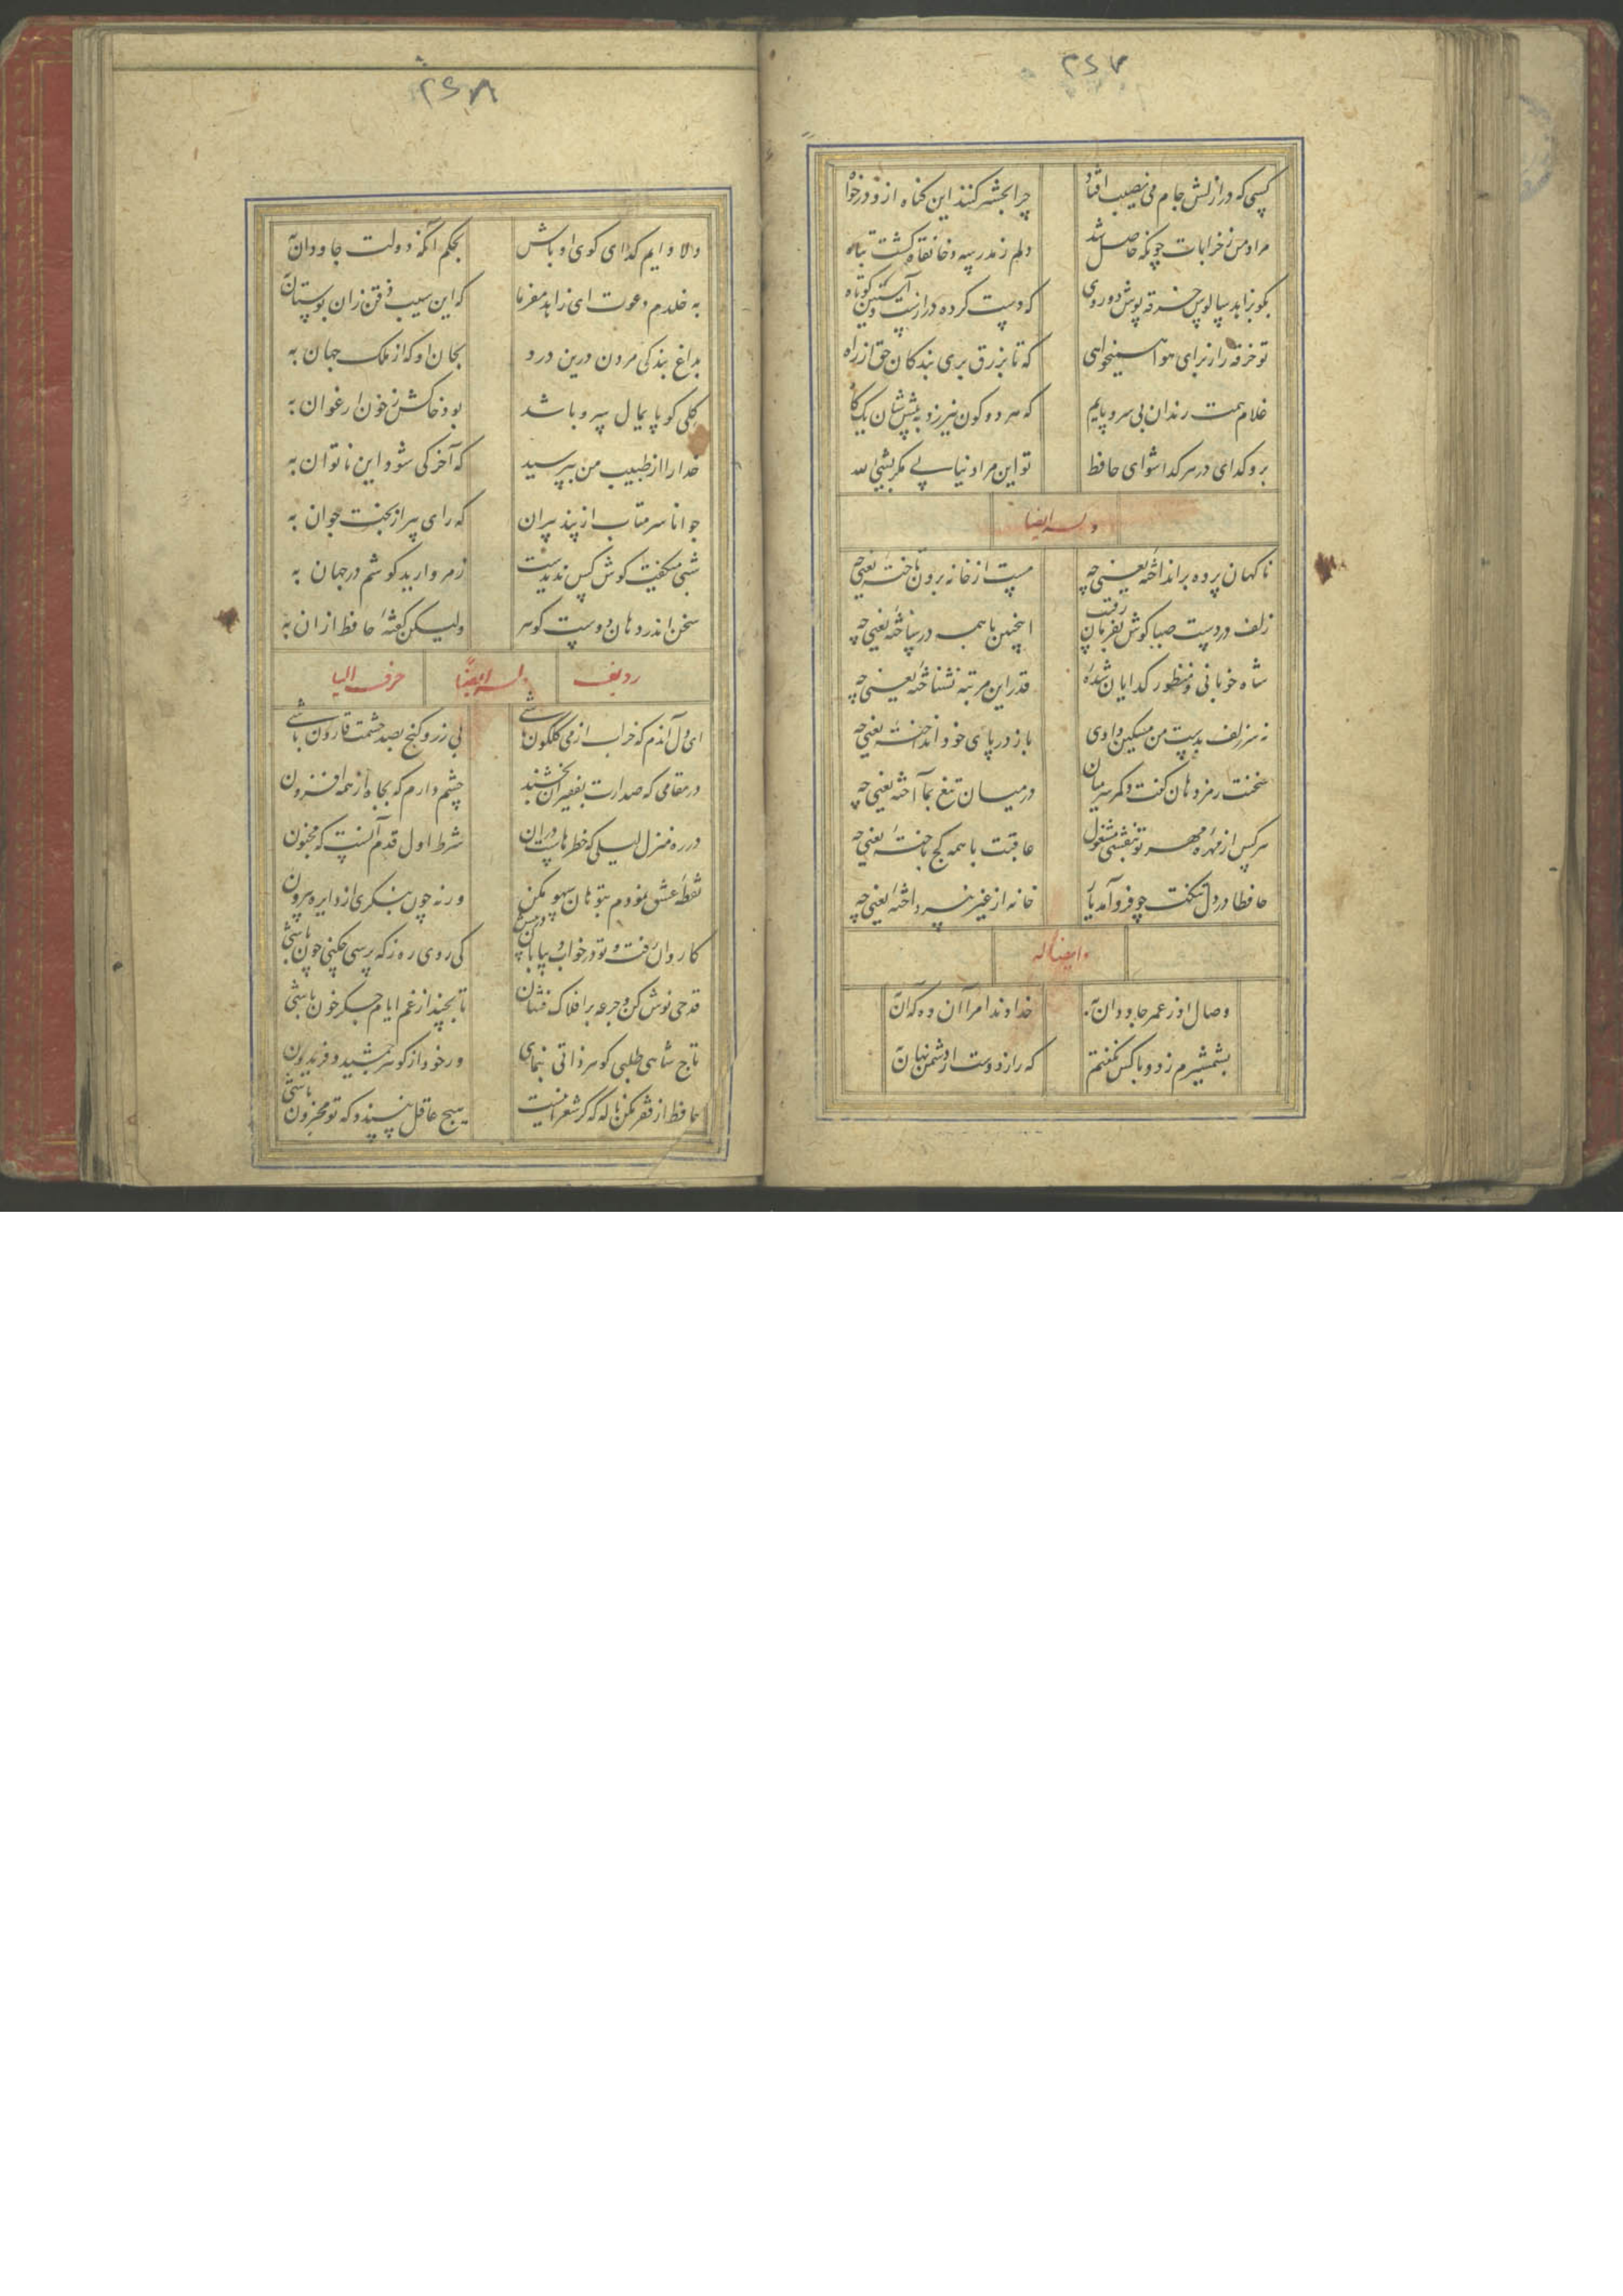 ۲۶۷
کسی که در ازلش جام می نصیب افتاد چرا بحشر کنند این کناه ازو درخواه
مراد من ز خرابات چونکه حاصل شد دلم ز مدرسه و خانقاه کشت تباه
بکو بزاهد سالوس خرقه پوش دوروی که دست کرده درازست و آستین کوتاه
تو خرقه را ز برای هوا همیخواهی که تا بزرق بری بندکان حق از راه
غلام همت رندان بی سر و پایم که هر دو کون نیرزد به پیششان یک کاه
برو کدای در هر کدا شوای حافظ تو این مراد نیابی مکر بشیئ الله
وله ایضا
ناکهان پرده برانداختهٔ یعنی چه مست از خانه برون تاختهٔ یعنی چه
زلف در دست صبا کوش بفرمان رقیب اینچنین با همه درساختهٔ یعنی چه
شاه خوبانی و منظور کدایان شدهٔ قدر این مرتبه نشناختهٔ یعنی چه
نه سر زلف بدست من مسکین دادی باز در پای خود انداختهٔ یعنی چه
سخنت رمز دهان کفت و کمر سر میان در میان تیغ بما آختهٔ یعنی چه
هرکس از مهرهٔ مهر تو بنقشی مشغول عاقبت با همه کج باختهٔ یعنی چه
حافظا در دل تنکت چو فرود آمد یار خانه از غیر نپرداختهٔ یعنی چه
وایضا له
وصال او ز عمر جاودان به خداوندا مرا آن ده که آن به
بشمشیرم زد و با کس نکفتم که راز دوست از دشمن نهان به
۲۶۸
دلا دایم کدای کوی او باش بحکم آنکه دولت جاودان به
به خلدم دعوت ای زاهد مفرما که این سیب ذقن زان بوستان به
بداغ بندکی مردن درین در بجان او که از ملک جهان به
کلی کو پایمال سرو باشد بود خاکش ز خون ارغوان به
خدارا از طبیب من بپرسید که آخر کی شود این ناتوان به
جوانا سر متاب از پند پیران که رای پیر از بخت جوان به
شبی میکفت کوش کس ندیدست ز مروارید کوشم در جهان به
سخن اندر دهان دوست کوهر ولیکن کفتهٔ حافظ از آن به
ردیف وله ایضاً حرف الیا
ای دل آندم که خراب از می کلکون باشی بی زر و کنج بصد حشمت قارون باشی
در مقامی که صدارت بفقیران بخشند چشم دارم که بجاه از همه افزون
در ره منزل لیلی که خطرهاست در آن شرط اول قدم آنست که مجنون
نقطهٔ عشق نمودم بتو هان سهو مکن ورنه چون بنکری از دایره بیرون
کاروان رفت و تو در خواب و بیابان در پیش کی روی ره ز که پرسی چکنی چون باشی
قدحی نوش کن و جرعه بر افلاک فشان تا بچند از غم ایام جکر خون باشی
تاج شاهی طلبی کوهر ذاتی بنمای ور خود از کوهر جمشید و فریدون
حافظ از فقر مکن ناله که کر شعر اینست هیچ عاقل نپسندد که تو محزون باشی